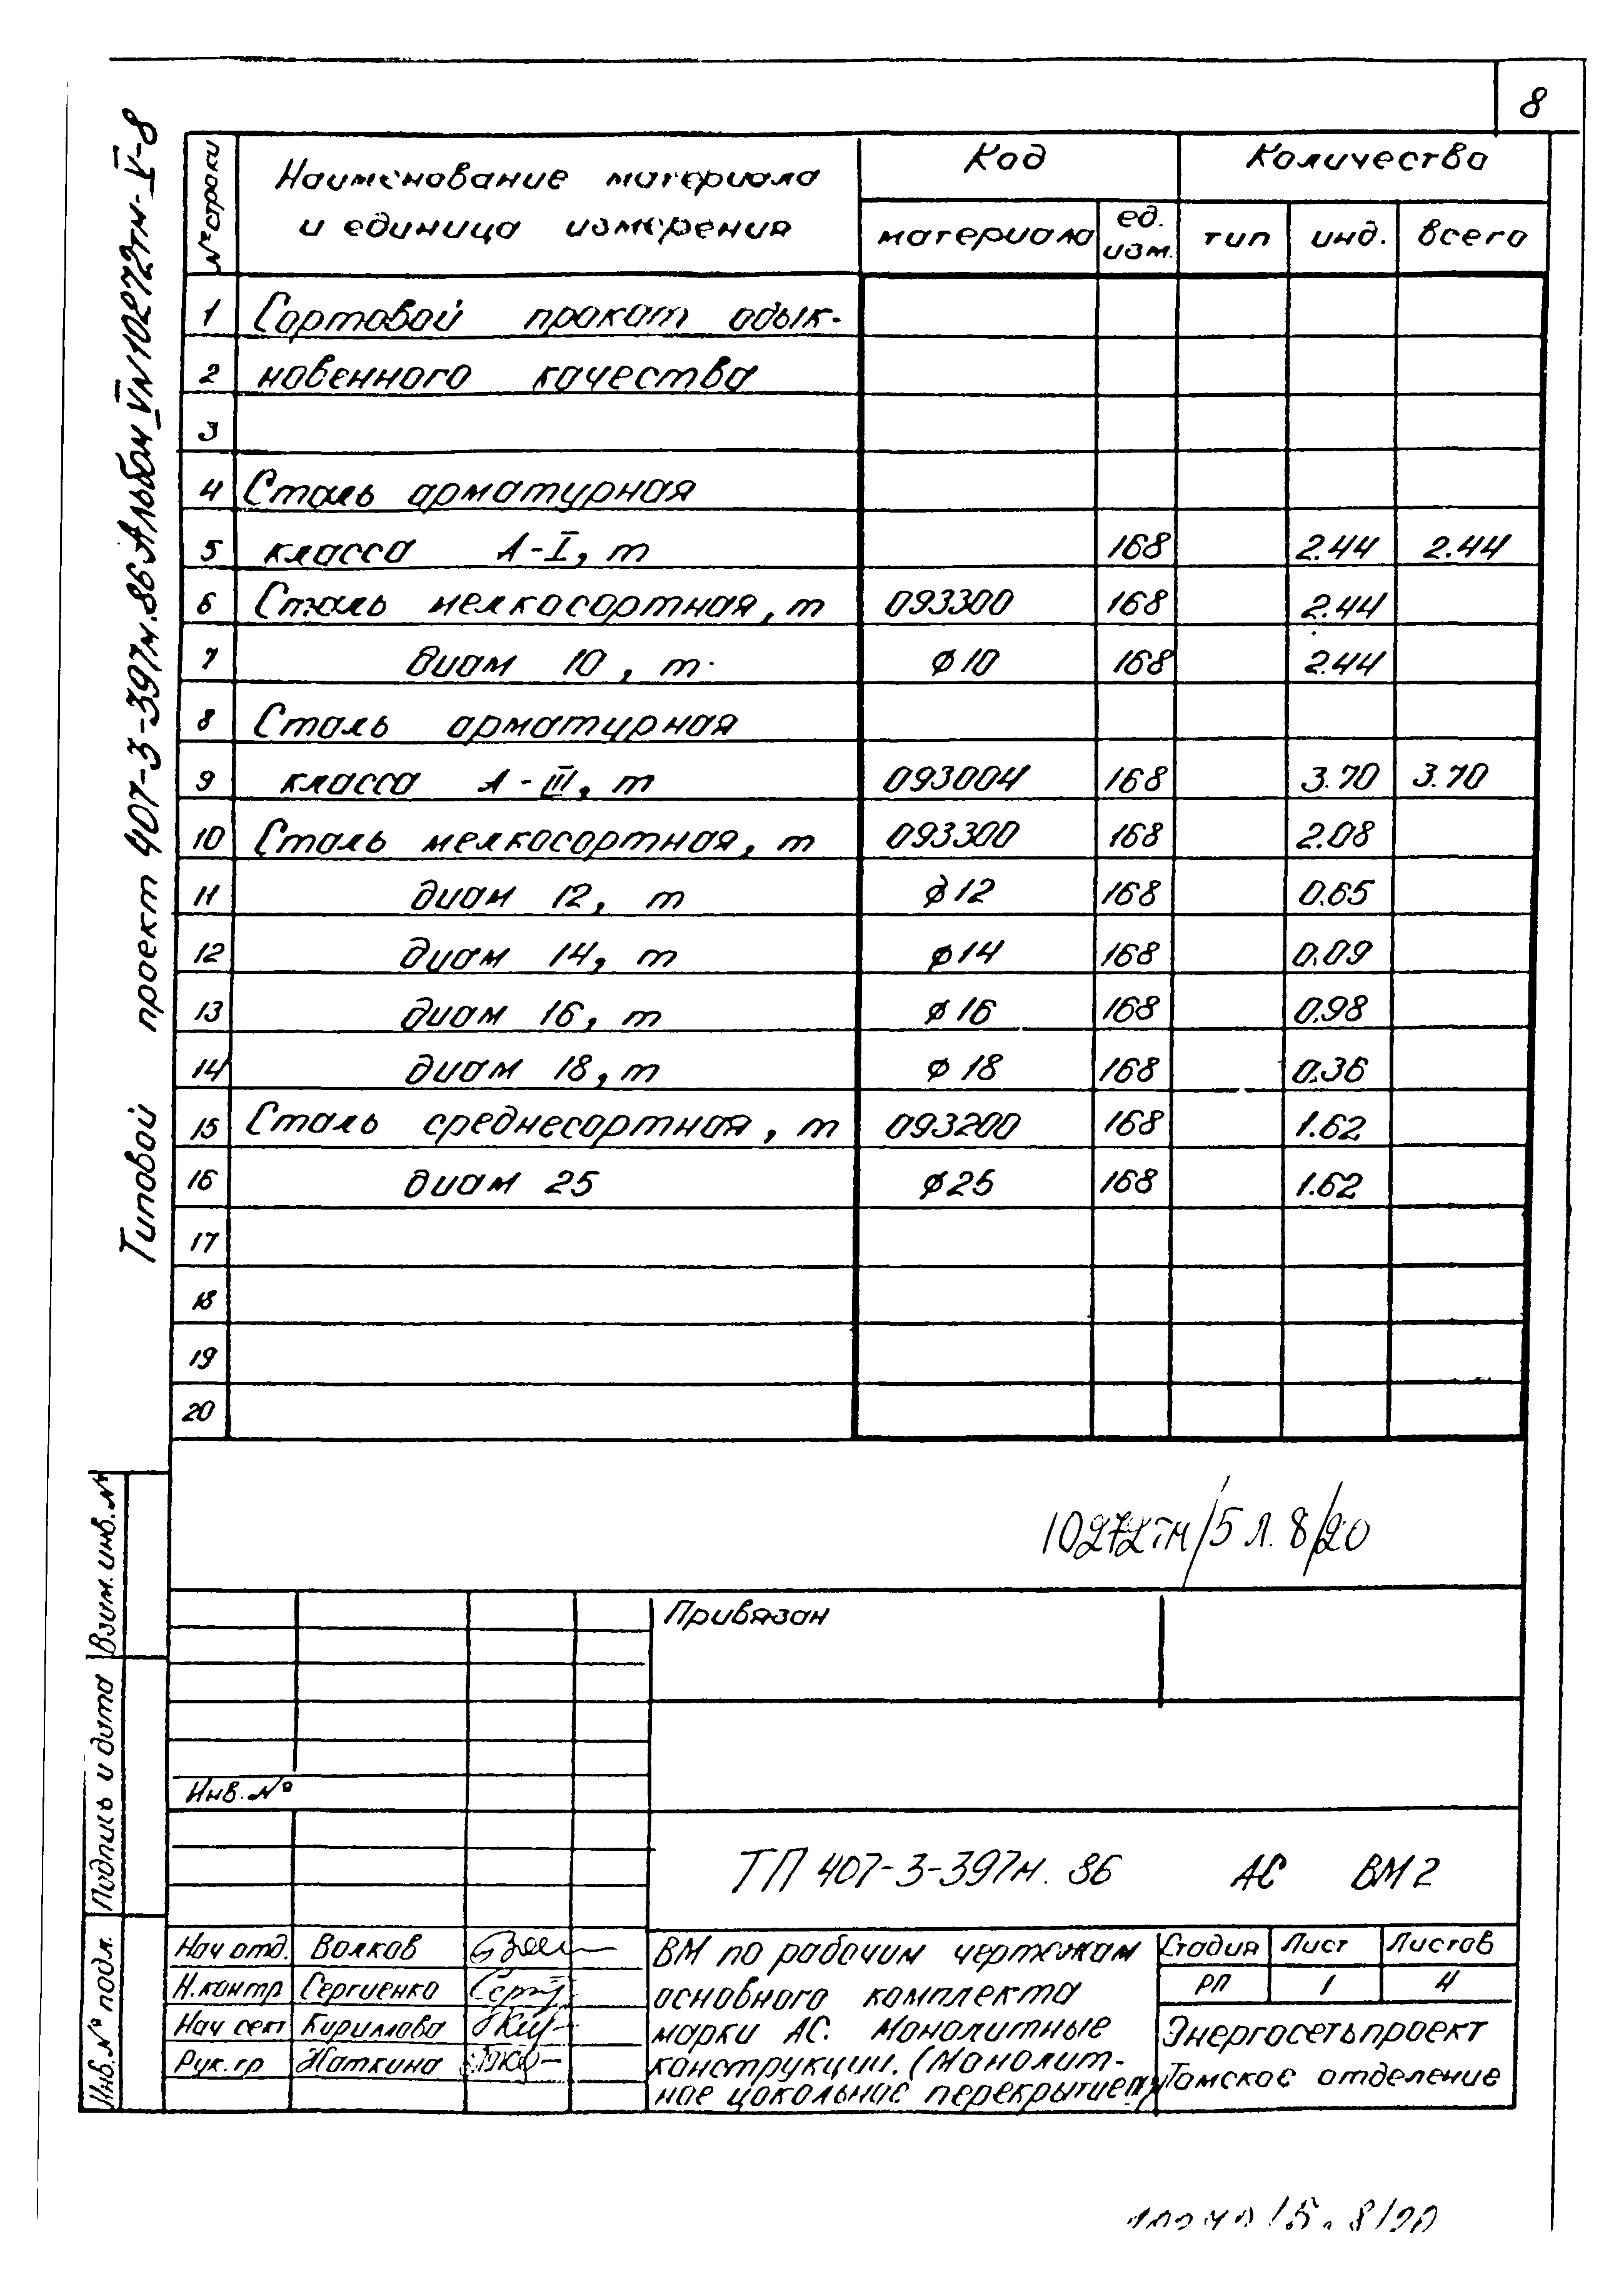 8
Типовой проект 407-3-397м.86 Альбом V N10272тм-V-8
№ строки
Наименование материала
и единица измерения
Код
Количества
материала
ед.
изм.
тип
инд.
всего
1 Сортовой прокат обык-
2 новенного качества
3
4 Сталь арматурная
5 класса А-I, т 168 2.44 2.44
6 Сталь мелкосортная, т 093300 168 2.44
7 диам 10, т. ⌀10 168 2.44
8 Сталь арматурная
9 класса А-III, т 093004 168 3.70 3.70
10 Сталь мелкосортная, т 093300 168 2.08
11 диам 12, т ⌀12 168 0.65
12 диам 14, т ⌀14 168 0.09
13 диам 16, т ⌀16 168 0.98
14 диам 18, т ⌀18 168 0.36
15 Сталь среднесортная, т 093200 168 1.62
16 диам 25 ⌀25 168 1.62
17
18
19
20
10272тм/5 л. 8/20
Взим. инв. №
Подпись и дата
Инв. № подл.
Привязан
Инв. №
ТП 407-3-397м. 86 АС ВМ2
Нач отд. Волков
Н.контр Сергиенко
Нач сект Кириллова
Рук. гр Наткина
ВМ по рабочим чертежам
основного комплекта
марки АС. Монолитные
конструкции. (Монолит-
ное цокольное перекрытие
Стадия Лист Листов
РП 1 4
Энергосетьпроект
Томское отделение